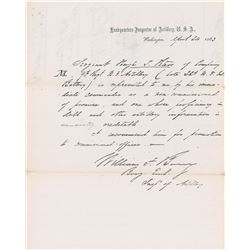 Headquarters Inspector of Artillery, U.S.A.,
Washington April 24 1863
Sergeant Hugh S. of Company
Regt. U.S. Artillery (late
Battery) is represented to me by his imme-
diate commander as a non commissioned
of promise, and one whose proficiency in
drill and other artillery information is
eminently creditable
I recommend him for promotion
to commissioned officer
William F. Barry
Brig. Genl
Insp. of Artillery